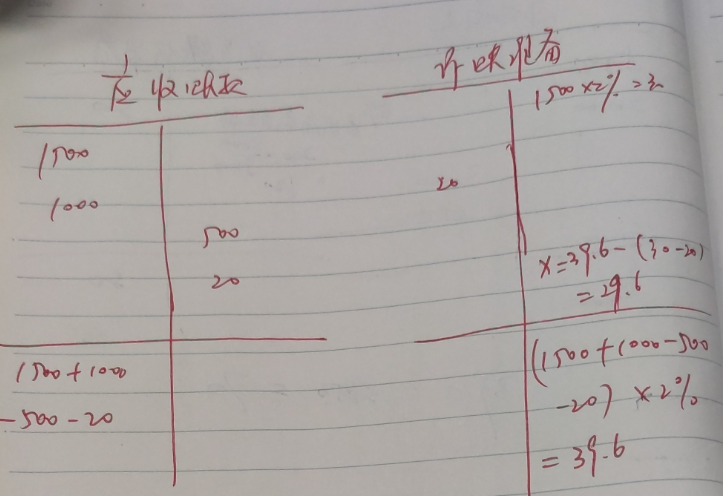 应收账款
坏账准备
1500
1000
500
20
1500+1000
-500-20
1500×2%=30
20
x=39.6-(30-20)
=29.6
(1500+1000-500
-20)×2%
=39.6